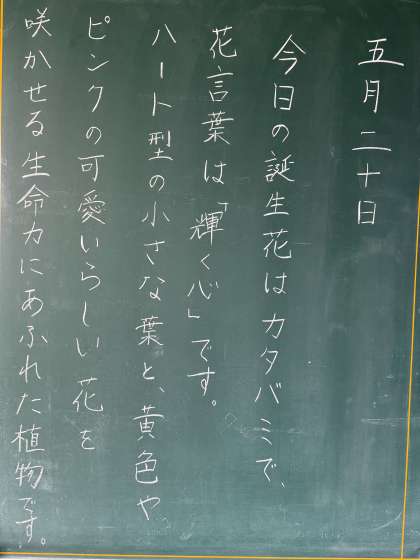 五月二十日
今日の誕生花はカタバミで、
花言葉は「輝く心」です。
ハート型の小さな葉と、黄色や
ピンクの可愛いらしい花を
咲かせる生命力にあふれた植物です。